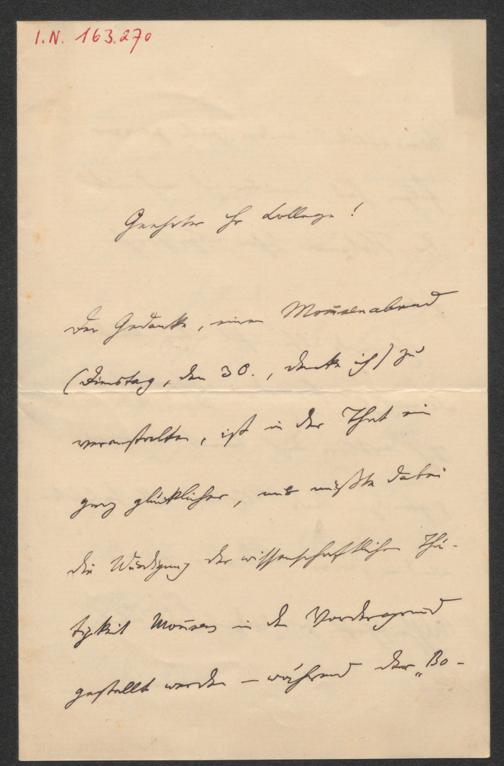 I.N. 163.270
Geehrter Hr College!
Der Gedanke, einen Mom̄senabend
(Dienstag, den 30., denke ich) zu
veranstalten, ist in der That ein
ganz glücklicher, nur müßte dabei
die Würdigung der wissenschaftlichen Thä-
tigkeit Mom̄sens in den Vordergrund
gestellt werden – während der „Bo-